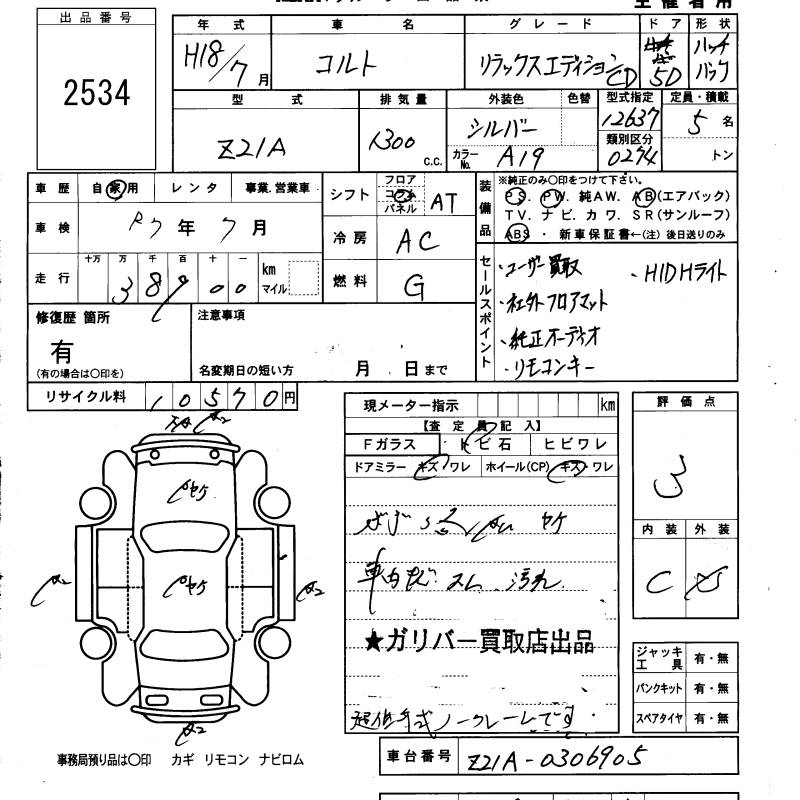 出品番号
2534
年式 車名 グレード ドア 形状
H18/7月 コルト リラックスエディションCD 5D ハッチバック
型式 排気量 外装色 色替 型式指定 定員・積載
Z21A 1300 c.c. シルバー 12637 5名
カラーNo. A19 類別区分 0274 トン
車歴 自家用 レンタ 事業.営業車
シフト フロア コラム パネル AT
装備品 ※純正のみ〇印をつけて下さい。
PS. PW. 純AW. AB(エアバック)
TV. ナビ. カワ. SR(サンルーフ)
ABS ・ 新車保証書←(注) 後日送りのみ
車検 R7年7月
冷房 AC
走行 十万 万 千 百 十 一 38900 km マイル
燃料 G
セールスポイント
・ユーザー買取 ・HIDHライト
・社外フロアマット
・純正オーディオ
・リモコンキー
修復歴 箇所 注意事項
有
(有の場合は〇印を) 名変期日の短い方 月 日まで
リサイクル料 10570円
現メーター指示 km
【査定員記入】
Fガラス トビ石 ヒビワレ
ドアミラー キズ/ワレ ホイール(CP) キズ・ワレ
評価点
3
内装 外装
C
ヤケ
ヤケ
ヤケ
車内 スレ 汚れ
★ガリバー買取店出品
超低年式ノークレームです
ジャッキ工具 有・無
パンクキット 有・無
スペアタイヤ 有・無
事務局預り品は〇印 カギ リモコン ナビロム
車台番号 Z21A-0306905